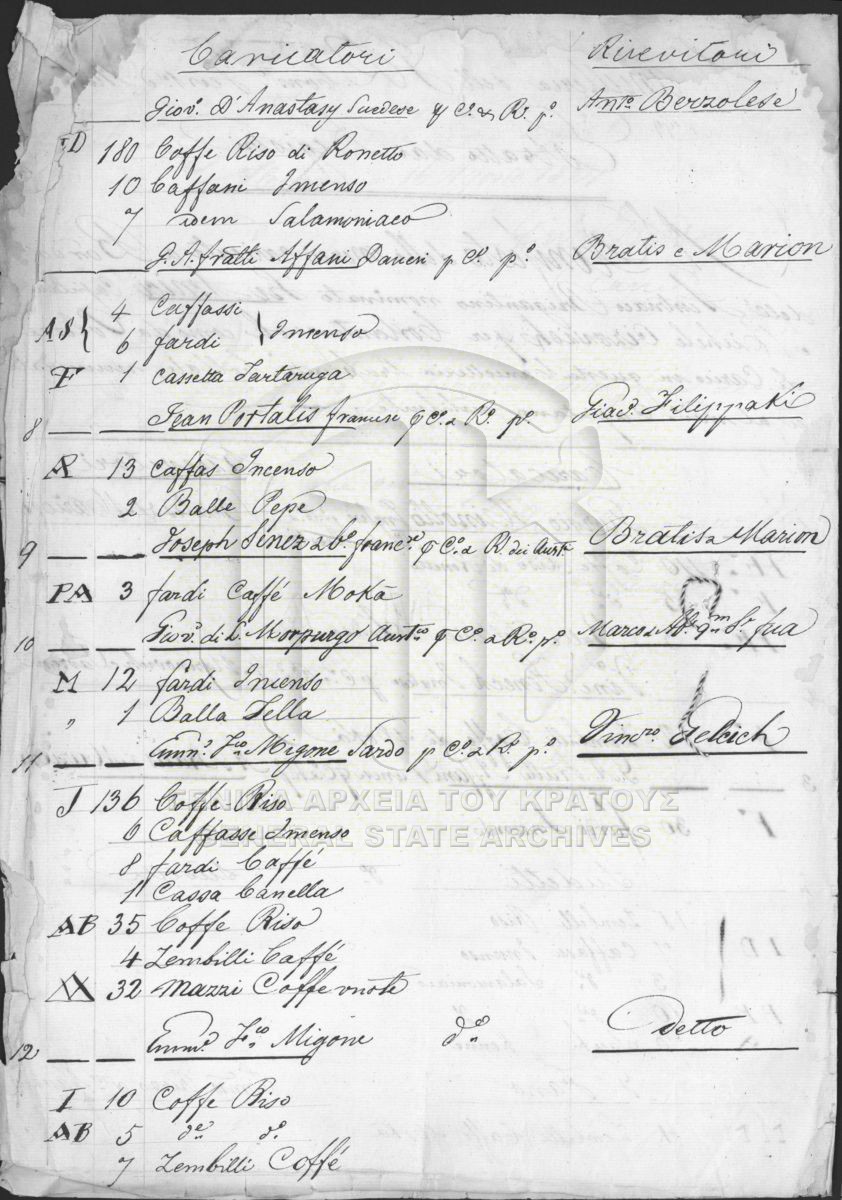 Caricatori Ricevitori
Giov.i D'Anastasy Suedese p C.o & R.o p.o Ant.o Berzolese
D 180 Coffe Riso di Ronetto
10 Caffani Incenso
7 idem Salamoniaco
G. A. fratti Affani Danesi p C.o p.o Bratis e Marion
AS { 4 Caffassi
6 fardi } Incenso
F 1 Cassetta Tartaruga
8 Jean Portalis francese p C.o & R.o p.o Giac.o Filippaki
R 13 Caffas Incenso
2 Balle Pepe
9 Joseph Senez & C.o franc.e p C.o & R.o dei Aust.i Bratis & Marion
PA 3 fardi Caffé Moka
10 Giov.i di L. Morpurgo Aust.co p C.o & R.o p.o Marco & q.m S.r fua
M 12 fardi Incenso
" 1 Balla Tella
11 Emm.l F.co Migone Sardo p C.o & R.o p.o Vinc.zo Gelcich
I 136 Coffe Riso
6 Caffasse Incenso
8 fardi Caffé
1 Cassa Canella
AB 35 Coffe Riso
4 Zembilli Caffé
32 Mazzi Coffe vuote
12 Emm.l F.co Migone d.o Detto
I 10 Coffe Riso
AB 5 d.e d.o
7 Zembilli Coffé
ΓΕΝΙΚΑ ΑΡΧΕΙΑ ΤΟΥ ΚΡΑΤΟΥΣ
GENERAL STATE ARCHIVES